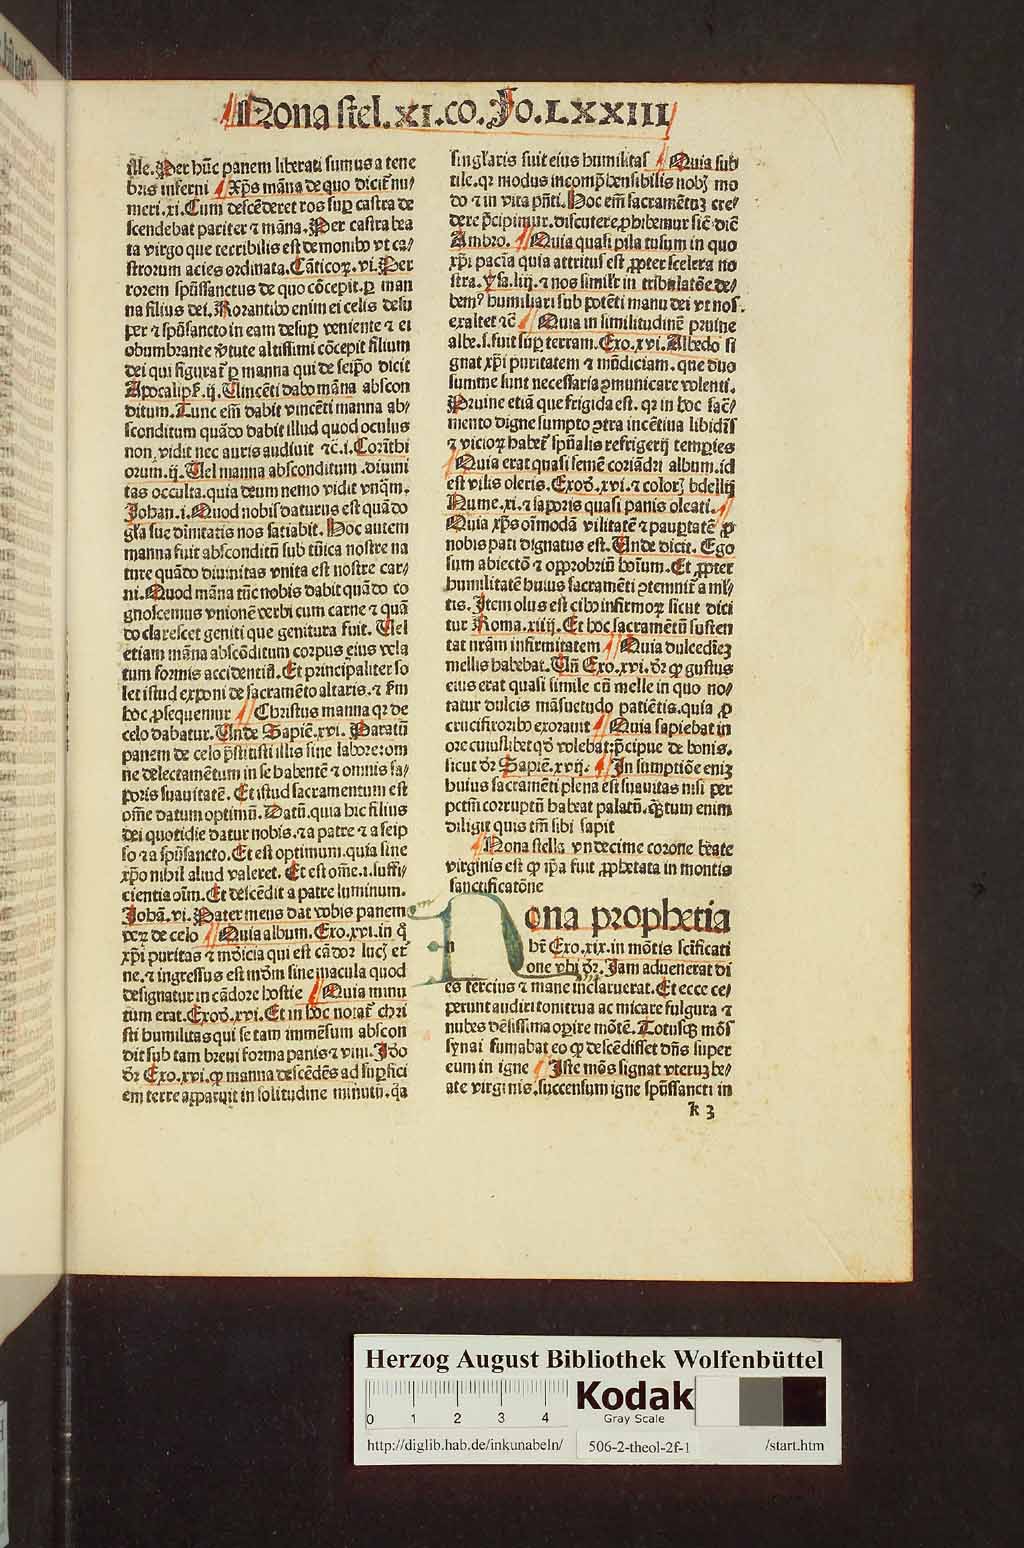 Nona stel. XI. co. Jo. LXXIII
ille. Per hūc panem liberati sumus a tene
bris inferni Xp̄s māna de quo dicit᷑ nu/
meri. xi. Cum descēderet ros suꝑ castra de
scendebat pariter ⁊ māna. Per castra bea
ta virgo que terribilis est demonibꝰ vt ca/
strorum acies ordinata. Cāticoꝝ. vi. Per
rorem spūssanctus de quo cōcepit. ꝑ man
na filius dei. Rorantibꝰ enim ei celis desu
per ⁊ spūsancto in eam desuꝑ veniente ⁊ ei
obumbrante v̄tute altissimi cōcepit filium
dei qui figurat᷑ ꝑ manna qui de seip̄o dicit
Apocalip̄. ij. Vincēti dabo māna abscon
ditum. Tunc em̄ dabit vincēti manna ab/
sconditum quādo dabit illud quod oculus
non vidit nec auris audiuit ⁊c̄. i. Corīthi
orum. ij. Vel manna absconditum. diuini
tas occulta. quia deum nemo vidit vnq̄m.
Johan. i. Quod nobis daturus est quādo
gl̄a sue diuinitatis nos satiabit. Hoc autem
manna fuit absconditū sub tūica nostre na
ture quādo diuinitas vnita est nostre car/
ni. Quod māna tūc nobis dabit quādo co
gnoscemus vnionē verbi cum carne ⁊ quā
do clarescet geniti que genitura fuit. Vel
etiam māna abscōditum corpus eius vela
tum formis accidentiū. Et principaliter so
let istud exponi de sacramēto altaris. ⁊ ẜm
hoc ꝓsequemur Christus manna qꝛ de
celo dabatur. Unde Sapiē. xvi. Paratū
panem de celo p̄stitisti illis sine labore: om
ne delectamētum in se habentē ⁊ omnis sa/
poris suauitatē. Et istud sacramentum est
om̄e datum optimū. Datū. quia hic filius
dei quotidie datur nobis. ⁊ a patre ⁊ a seip
so ⁊ a spūsancto. Et est optimum. quia sine
xp̄o nihil aliud valeret. Et est om̄e. i. suffi/
cientia oīm. Et descēdit a patre luminum.
Johā. vi. Pater meus dat vobis panem
veꝝ de celo Quia album. Exo. xvi. in q̄
xp̄i puritas ⁊ mūdicia qui est cādor lucꝭ et᷑
ne. ⁊ ingressus est mūdm sine macula quod
designatur in cādore hostie Quia minu
tum erat. Exod̄. xvi. Et in hoc notat᷑ chri
sti humilitas qui se tam immēsum abscon
dit sub tam breui forma panis ⁊ vini. Jdō
dr̄ Exo. xvi. ꝙ manna descēdēs ad suꝑfici
em terre apparuit in solitudine minutū. q̄a
singlaris fuit eius humilitas Quia sub
tile. qꝛ modus incomp̄hensibilis nobꝭ mo
do ⁊ in vita p̄nti. Hoc em̄ sacramentuꝫ cre/
dere p̄cipimur. discutere ꝓhibemur sic̄ dic̄
Ambro. Quia quasi pila tusum in quo
xp̄i paciā quia attritus est ꝓpter scelera no
stra. ysa. liij. ⁊ nos simil̄r in tribulatōe de/
bemꝰ humiliari sub potēti manu dei vt nos
exaltet ⁊c̄ Quia in similitudinē pruine
albe. s. fuit suꝑ terram. Exo. xvi. Albedo si
gnat xp̄i puritatem ⁊ mūdiciam. que duo
summe sunt necessaria ꝯmunicare volenti.
Pruine etiā que frigida est. qꝛ in hoc sac̄/
mento digne sumpto ꝯtra incētiua libidīs
⁊ vicioꝝ habet᷑ spūalis refrigerij temperies
Quia erat quasi semē coriādri album. id
est vilis oleris. Exod̄. xvi. ⁊ colorꝭ bdellij
Nume. xi. ⁊ saporis quasi panis oleati.
Quia xp̄s oīmodā vilitatē ⁊ pauꝑtatē ꝓ
nobis pati dignatus est. Unde dicit. Ego
sum abiectō ⁊ opprobriū hoīum. Et ꝓpter
humilitatē huius sacramēti ꝯtemnit᷑ a ml̄/
tis. Item olus est cibꝰ infirmoꝝ sicut dici
tur Roma. xiiij. Et hoc sacramētū susten
tat nr̄am infirmitatem Quia dulcediēꝫ
mellis habebat. Un̄ Exo. xvi. dr̄ ꝙ gustus
eius erat quasi simile cū melle in quo no/
tatur dulcis māsuetudo patiētis. quia ꝓ
crucifixoribꝰ exorauit Quia sapiebat in
ore cuiuslibet qd̄ volebat: p̄cipue de bonis.
sicut dr̄ Sapiē. xvij. In sumptiōe enīꝫ
huius sacramēti plena est suauitas nisi per
pctm̄ corruptū habeat palatū. q̄ꝫtum enim
diligit quis tm̄ sibi sapit
Nona stella vndecime corone beate
virginis est ꝙ ip̄a fuit ꝓphetata in montis
sanctificatōne
Nona prophetia
hr̄ Exo. xix. in mōtis sctificati
one vbi dr̄. Jam aduenerat di
es tercius ⁊ mane inclaruerat. Et ecce ce/
perunt audiri tonitrua ac micare fulgura ⁊
nubes dēsissima operire mōtē. Totusqꝫ mōs
synai fumabat eo ꝙ descēdisset dn̄s super
eum in igne Iste mōs signat vteruꝫ be/
ate virginis. succensum igne spūssancti in
k 3
Herzog August Bibliothek Wolfenbüttel
0 1 2 3 4
Kodak
Gray Scale
http://diglib.hab.de/inkunabeln/
506-2-theol-2f-1
/start.htm